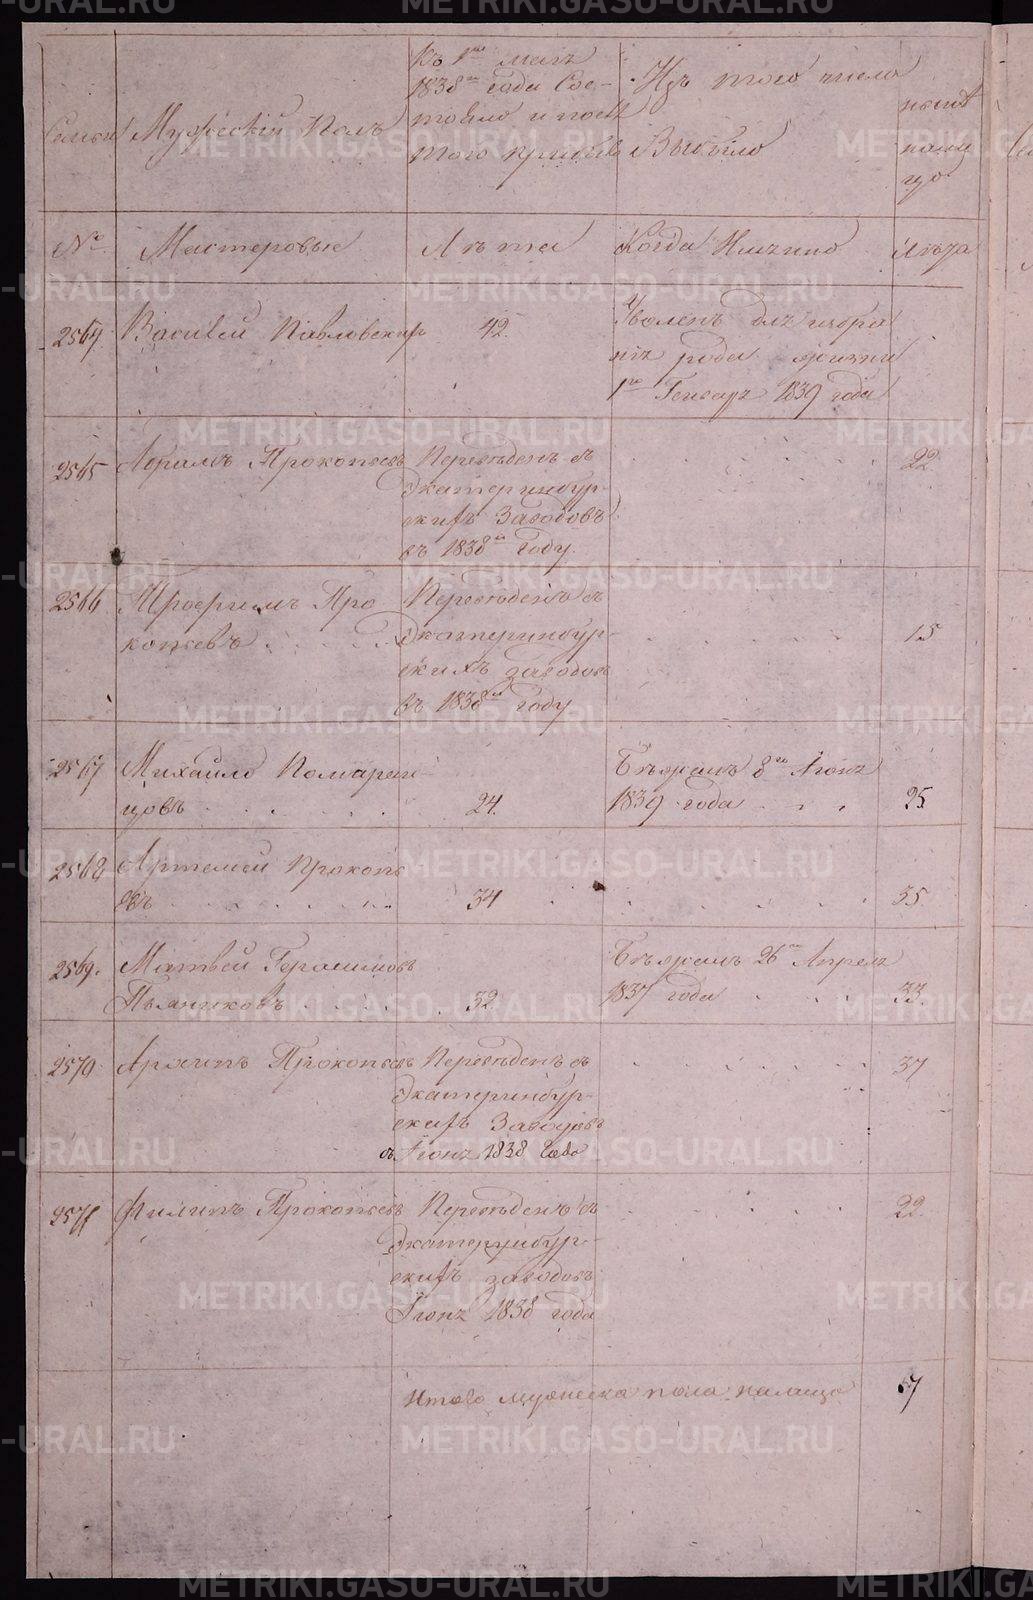 Семьи
Мужескiй Полъ
Къ 1му маiя
1838го года Сос-
тояло и после
того прибыло
Изъ того числа
Выбыло
ныне
нали
цо
№
Мастеровые
Лѣта
Когда Имянно
Лѣта
2564
Василей Павловскихъ
42
Уволенъ для избра
нiя рода жизни
1го Генваря 1839 года
2565
Абрамъ Прокопьевъ
Переведенъ съ
Экатеринбур-
скихъ Заводовъ
въ 1838м Году.
22
2566
Трофимъ Про
копьевъ
Переведенъ съ
Экатеринбур-
скихъ заводовъ
въ 1838м году
15
2567
Михайло Померан-
цовъ
24.
Бежалъ 8го Iюня
1839 года
25.
2568
Артемей Прокопь
евъ
34
35.
2569.
Матвей Герасимовъ
Пьянковъ
32.
Бежалъ 26го Апреля
1837 года
33.
2570
Архипъ Прокопьевъ
Переведенъ съ
Экатеринбур-
скихъ Заводовъ
съ Iюня 1838 Года
37
2571
Филипъ Прокопьевъ
Переведенъ съ
Экатеринбур-
скихъ заводовъ
Iюня 1838 года
22.
Итого мужеска пола налицо
67
METRIKI.GASO-URAL.RU